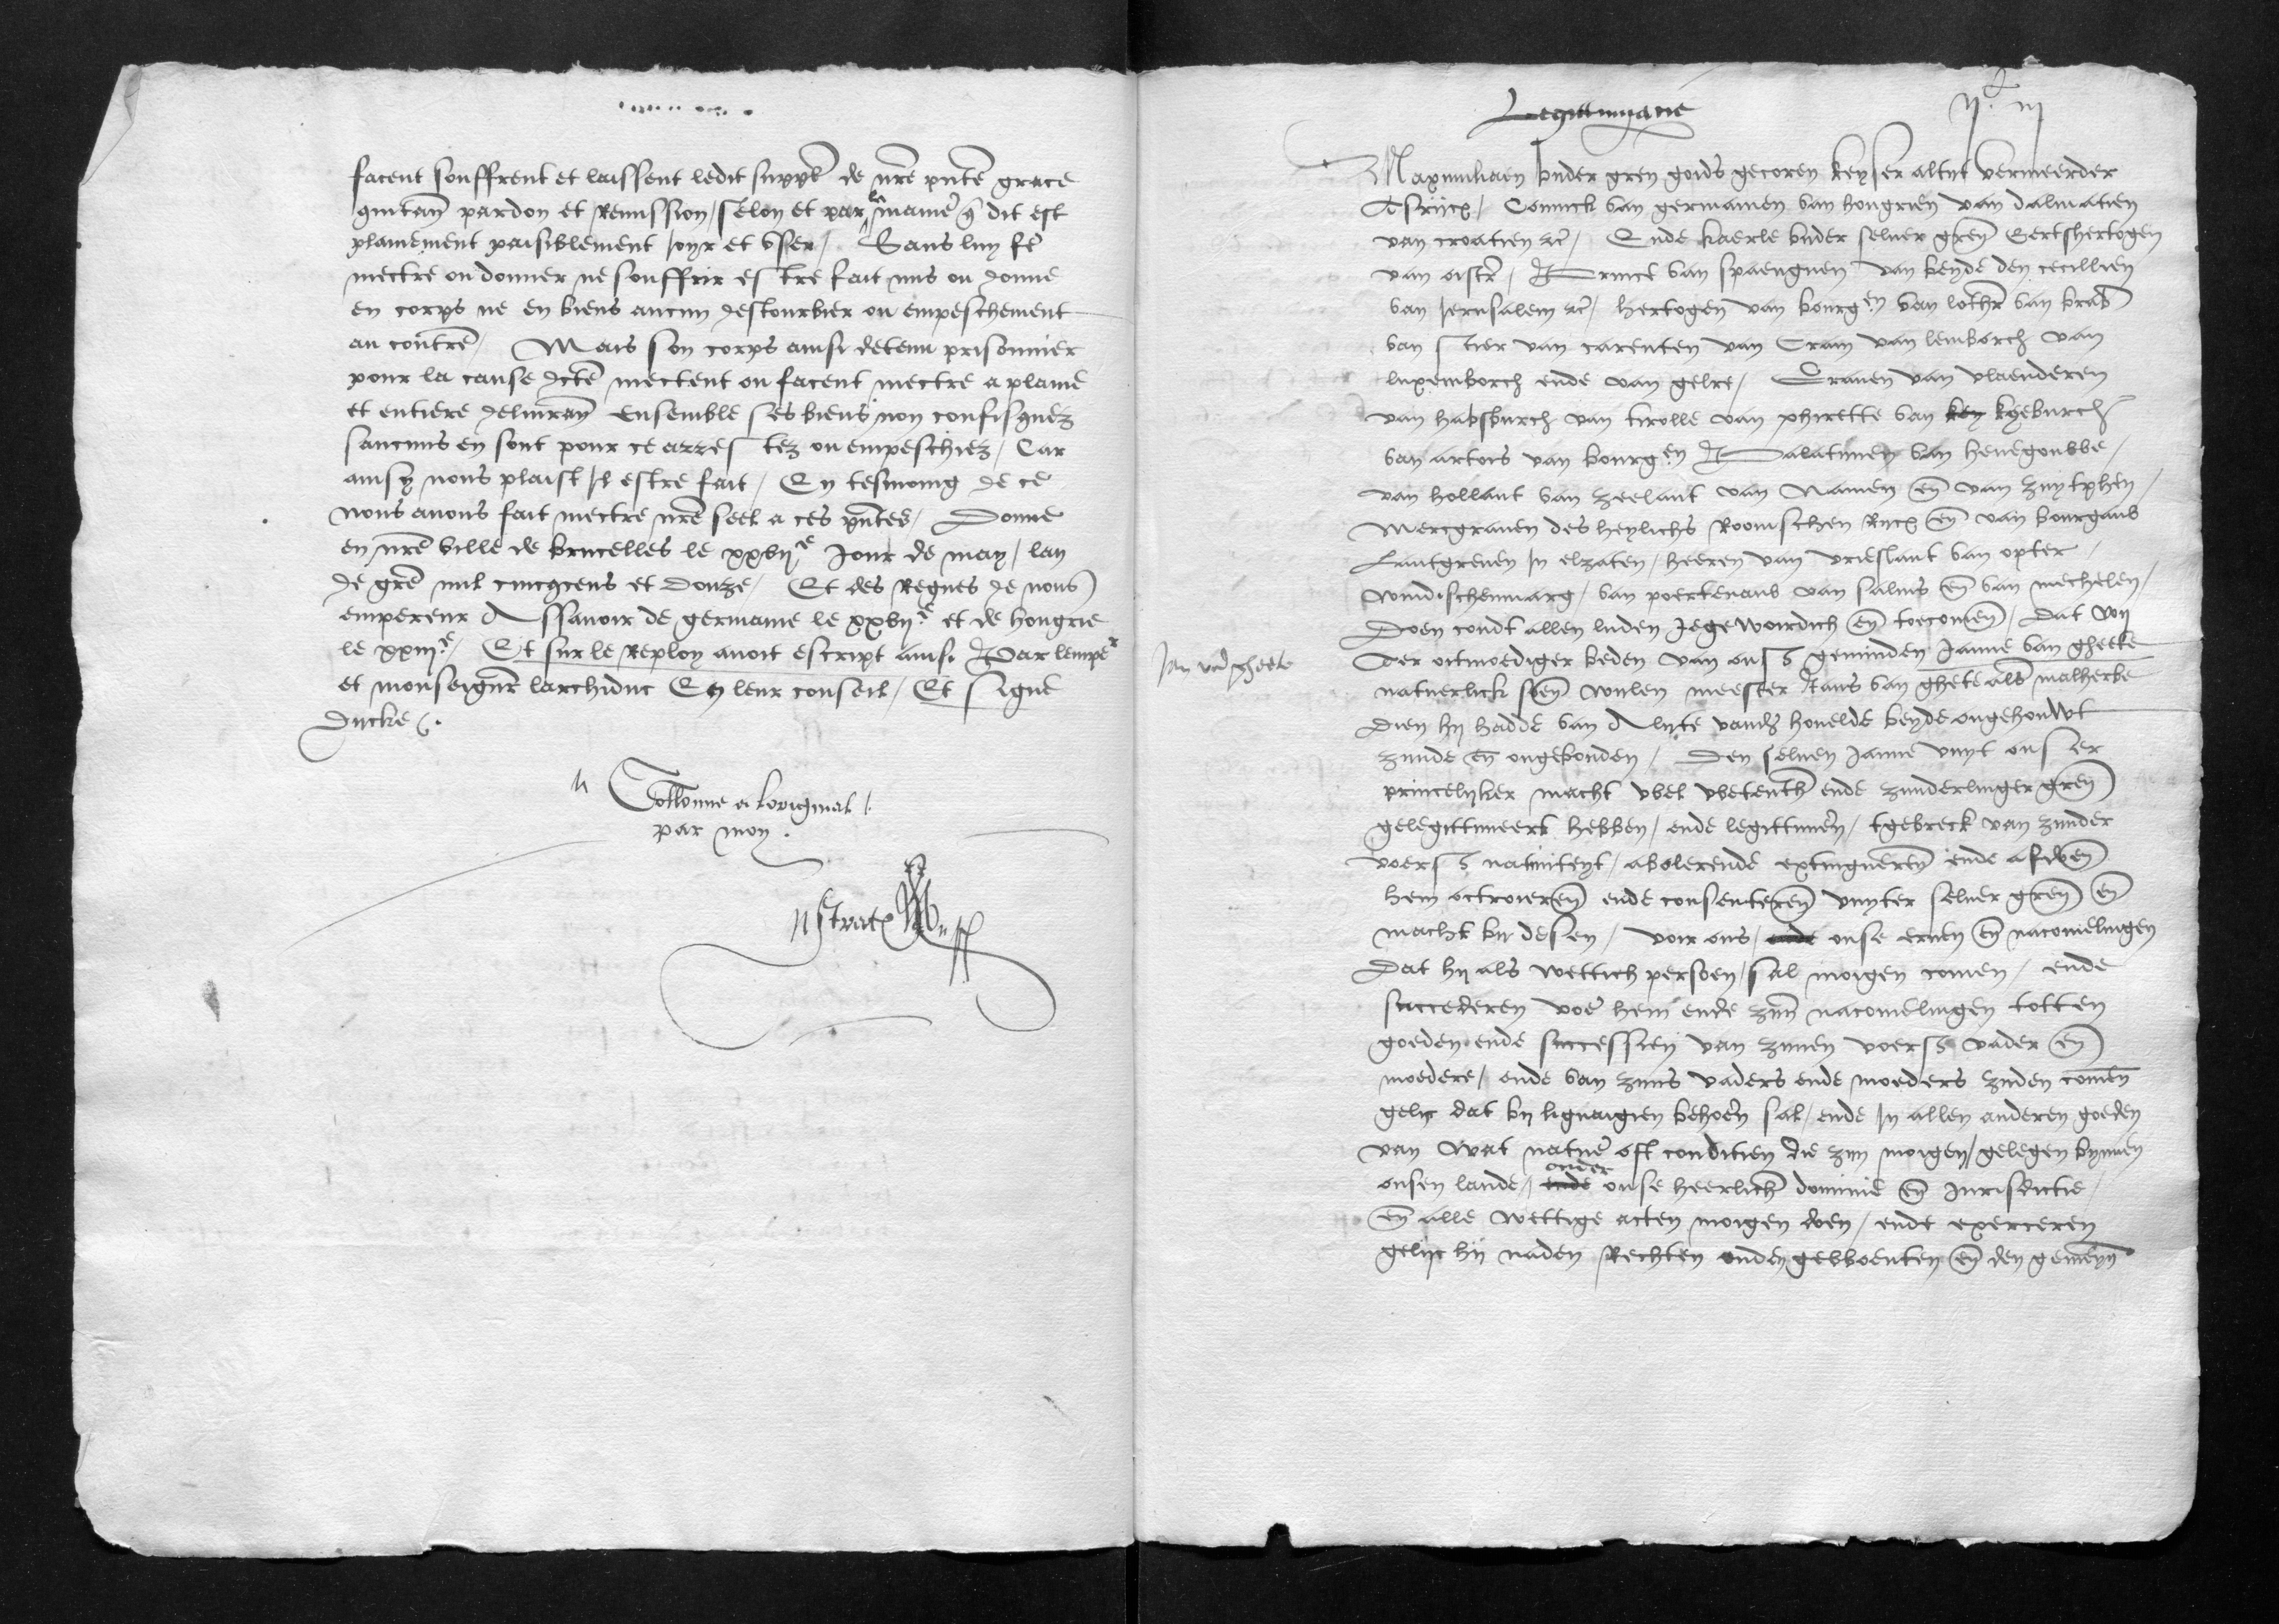 facent souffrent et laissent ledit suppl̃t de nr̃e pñte grace
quictañ pardon et Remission / selon et par la manie' q̃ dit est
plainement paisiblement Joyr et vser / Sans luy fe'
mectre ou donner ne souffrir estre fait mis ou donne
en corps ne en biens aucun destourbier ou empeschement
au contre' / Mais son corps ainsi detenu prisonnier
pour la cause dcte' mectent ou facent mectre a plaine
et entiere deliurañ Ensemble ses biens non confisquez
saucuns en sont pour ce arrestez ou empeschiez / Car
ainsy nous plaist Jl estre fait / En tesmoing de ce
nous auons fait mectre nr̃e seel a ces pñtes / Donne
en nr̃e ville de brucelles le xxvijᵉ Jour de may / lan
de gre' mil cincqcens et douze / Et des Regnes de nous
empereur Assauoir de germanie le xxvijᵉ et de hongrie
le xxiijᵉ / Et sur le Reploy auoit escript ainsi Par lempeʳ
et monseignr̃ larchiduc En leur conseil / Et signe
Dycke /.
Collonne a loriginal /.
par moy .
Legittimatie
ijᶜ iij
Maximiliaen bider gren goids gecoren keyser altyt vermeerder
Tsrijcx / Coninck van germanien van hongrien van dalmatien
van croatien ꝛc̃ / Ende kaerle bider seluer greñ Eertshertogen
van oistr̃ / Prince van spaengnen van beyde den cecillien
van Jerusalem ꝛc̃ / hertogen van bourgᵉⁿ van lothr̃ van brab̃
van stier van carenten van Crain van lemborch van
luxemborch ende van gelre / Grauen van vlaenderen
van habsburch van tirolle van phirette van key kyeburch
van artois van bourgᵉⁿ Palatinen van henegouwe /
van hollant van zeelant van Namen eñ van zuytphen /
Mercgrauen des heylichs Roomschen Rycx eñ van bourgaub
Lantgreuen Jn elzaten / heeren van vrieslant van opter /
windisschenmarg / van poertenaub van salins eñ van mechelen /
Doen condt allen luden Jegewoirdich eñ toecomeñ / Dat wij
Jan vã gheete
Ter oitmoediger beden van ons geminden Janne van gheete
natuerlick soeñ wylen meester Jans van ghete als malherbe
dien hij hadde van Alijte vandẽ houelde beyde ongehouwt
zynde eñ ongebonden / Den seluen Janne vuyt onser
princelijker macht vbel vbetenth̃ ende zunderlinger greñ
gelegittimeert hebben / ende legittimeren / tgebreck van zynder
voers natiuiteyt / abolerende extinguereñ ende afdoeñ
hem octroiereñ ende consentereñ vuyter seluer greñ eñ
macht bij desen / voir ons / ende onse eruen eñ nacomelingen
Dat hij als wettich persoen / sal moigen comen / ende
succederen voe' hem ende zynẽ nacomelingen totten
goeden ende successien van zynen voers vader eñ
moedere / ende van zyns vaders ende moeders zyden comen
gelyc dat bij lignaigien behoe'n sal / ende Jn allen anderen goeden
van wat natue' oft conditien die zyn moigen / gelegen bynnen
onsen lande / ende onder onse heerlich̃ dominie eñ Jurisdictie /
eñ alle wettige acten moigen doen / ende exerceren
gelijc hij naden Rechten ouden gewoenten eñ den gemeyñ